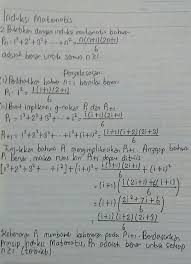 Induksi Matematis
2. Buktikan dengan induksi matematis bahwa
Pn = 1² + 2² + 3² + ... + n² = n(n+1)(2n+1)/6
adalah benar untuk semua n ≥ 1
Penyelesaian
(i) Perlihatkan bahwa n = 1 bernilai benar
P1 = 1² = 1(1+1)(2+1)/6
(ii) Buat implikasi, Pi dan Pi+1
Pi = 1² + 2² + 3² + ... + i² = i(i+1)(2i+1)/6
Pi+1 = 1² + 2² + 3² + ... + (i+1)² = (i+1)(i+2)(2i+3)/6
Tunjukkan bahwa Pi mengimplikasikan Pi+1. Anggap bahwa
Pi benar, maka ruas kiri Pi+1 dapat ditulis
[1² + 2² + 3² + ... + i²] + (i+1)² = i(i+1)(2i+1)/6 + (i+1)²
= (i+1) i(2i+1) + 6(i+1)/6
= (i+1) 2i² + 7i + 6/6
= (i+1)(i+2)(2i+3)/6
Kebenaran Pi membawa kebenaran pada Pi+1. Berdasarkan
Prinsip Induksi Matematis, Pn adalah benar untuk setiap
n ≥ 1 (terbukti)